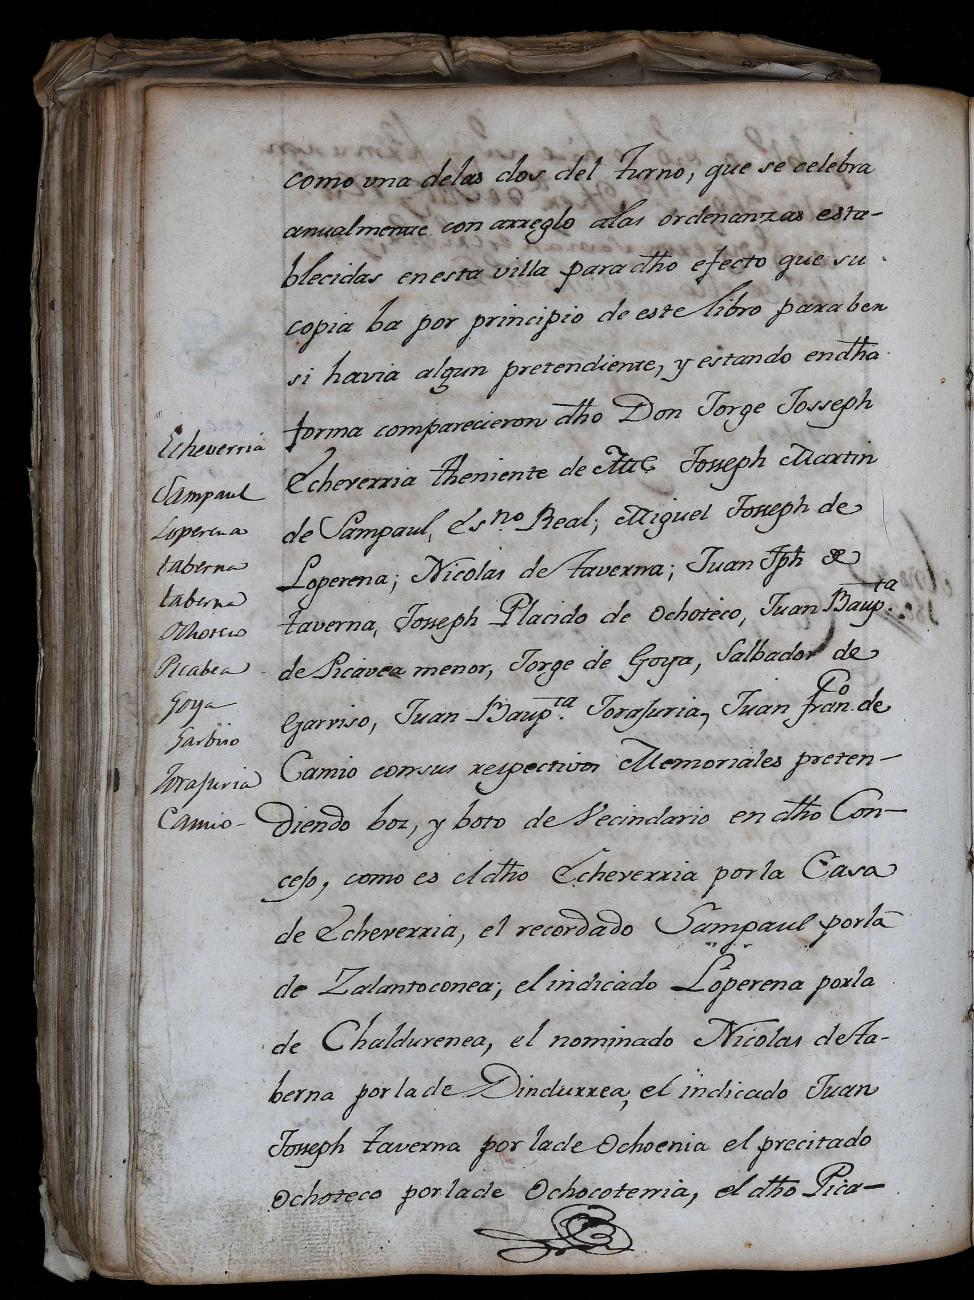 como vna delas dos del Turno, que se celebra
anualmente con arreglo alas ordenanzas esta-
blecidas enesta villa para dho efecto que su
copia ba por principio de este libro para ben
si havia algun pretendiente, y estando en dha
forma comparecieron dho Don Jorge Josseph
Echeverria theniente de Josseph Martin
de Sampaul, Esno Real; Miguel Josseph de
Loperena; Nicolas de taverna; Juan Jph de
taverna, Josseph Placido de Ochoteco, Juan Baupta
de Picavea menor, Jorge de Goya, Salbador de
Garviso, Juan Baupta Jorajuria, Juan franco de
Camio consus respectivos Memoriales preten-
diendo boz, y boto de Vecindario en dho Con-
cejo, como es el dho Echeverria por la Casa
de Echeverria, el recordado Sampaul por la
de Zalantoconea; el indicado Loperena porla
de Chaldurenea, el nominado Nicolas de ta-
berna por la de Dindurrea, el indicado Juan
Josseph taverna por lade Ochoenia el precitado
Ochoteco por lade Ochocotenia, el dho Pica-
Echeverria
Sampaul
Loperena
taberna
taberna
Othoteco
Picabea
Goya
Garbiso
Jorajuria
Camio-